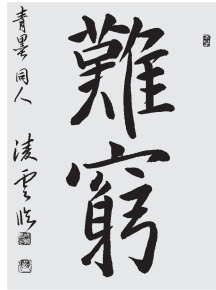 難窮
青墨同人 凌雲臨